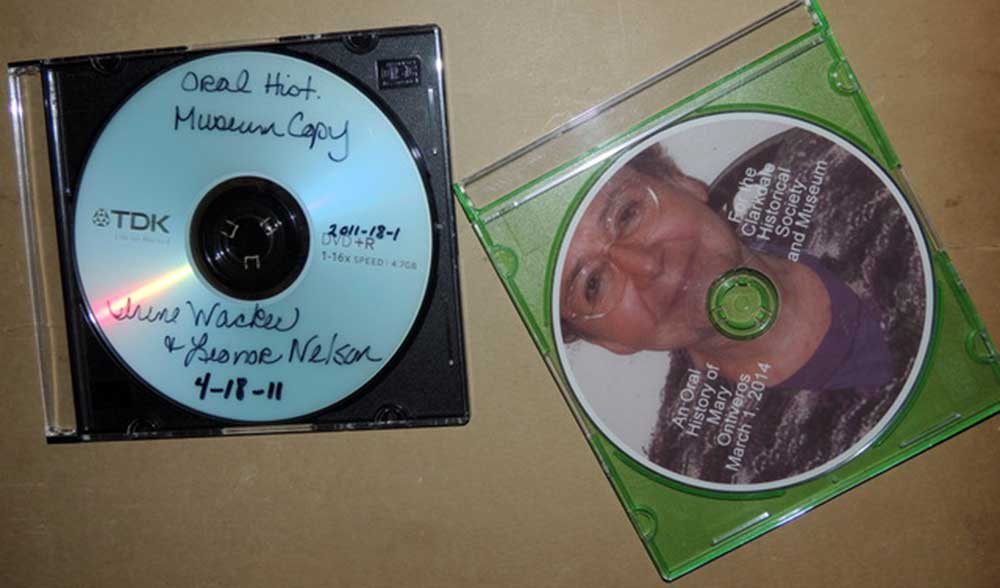 Oral Hist.
Museum Copy
TDK
Life on Record
2011-18-1
DVD+R
1-16x SPEED | 4.7GB
Irene Wacker
& Leonor Nelson
4-18-11
From the
Clarkdale
Historical
Society
and Museum
An Oral
History of
Mary
Ontiveros
March 1, 2014